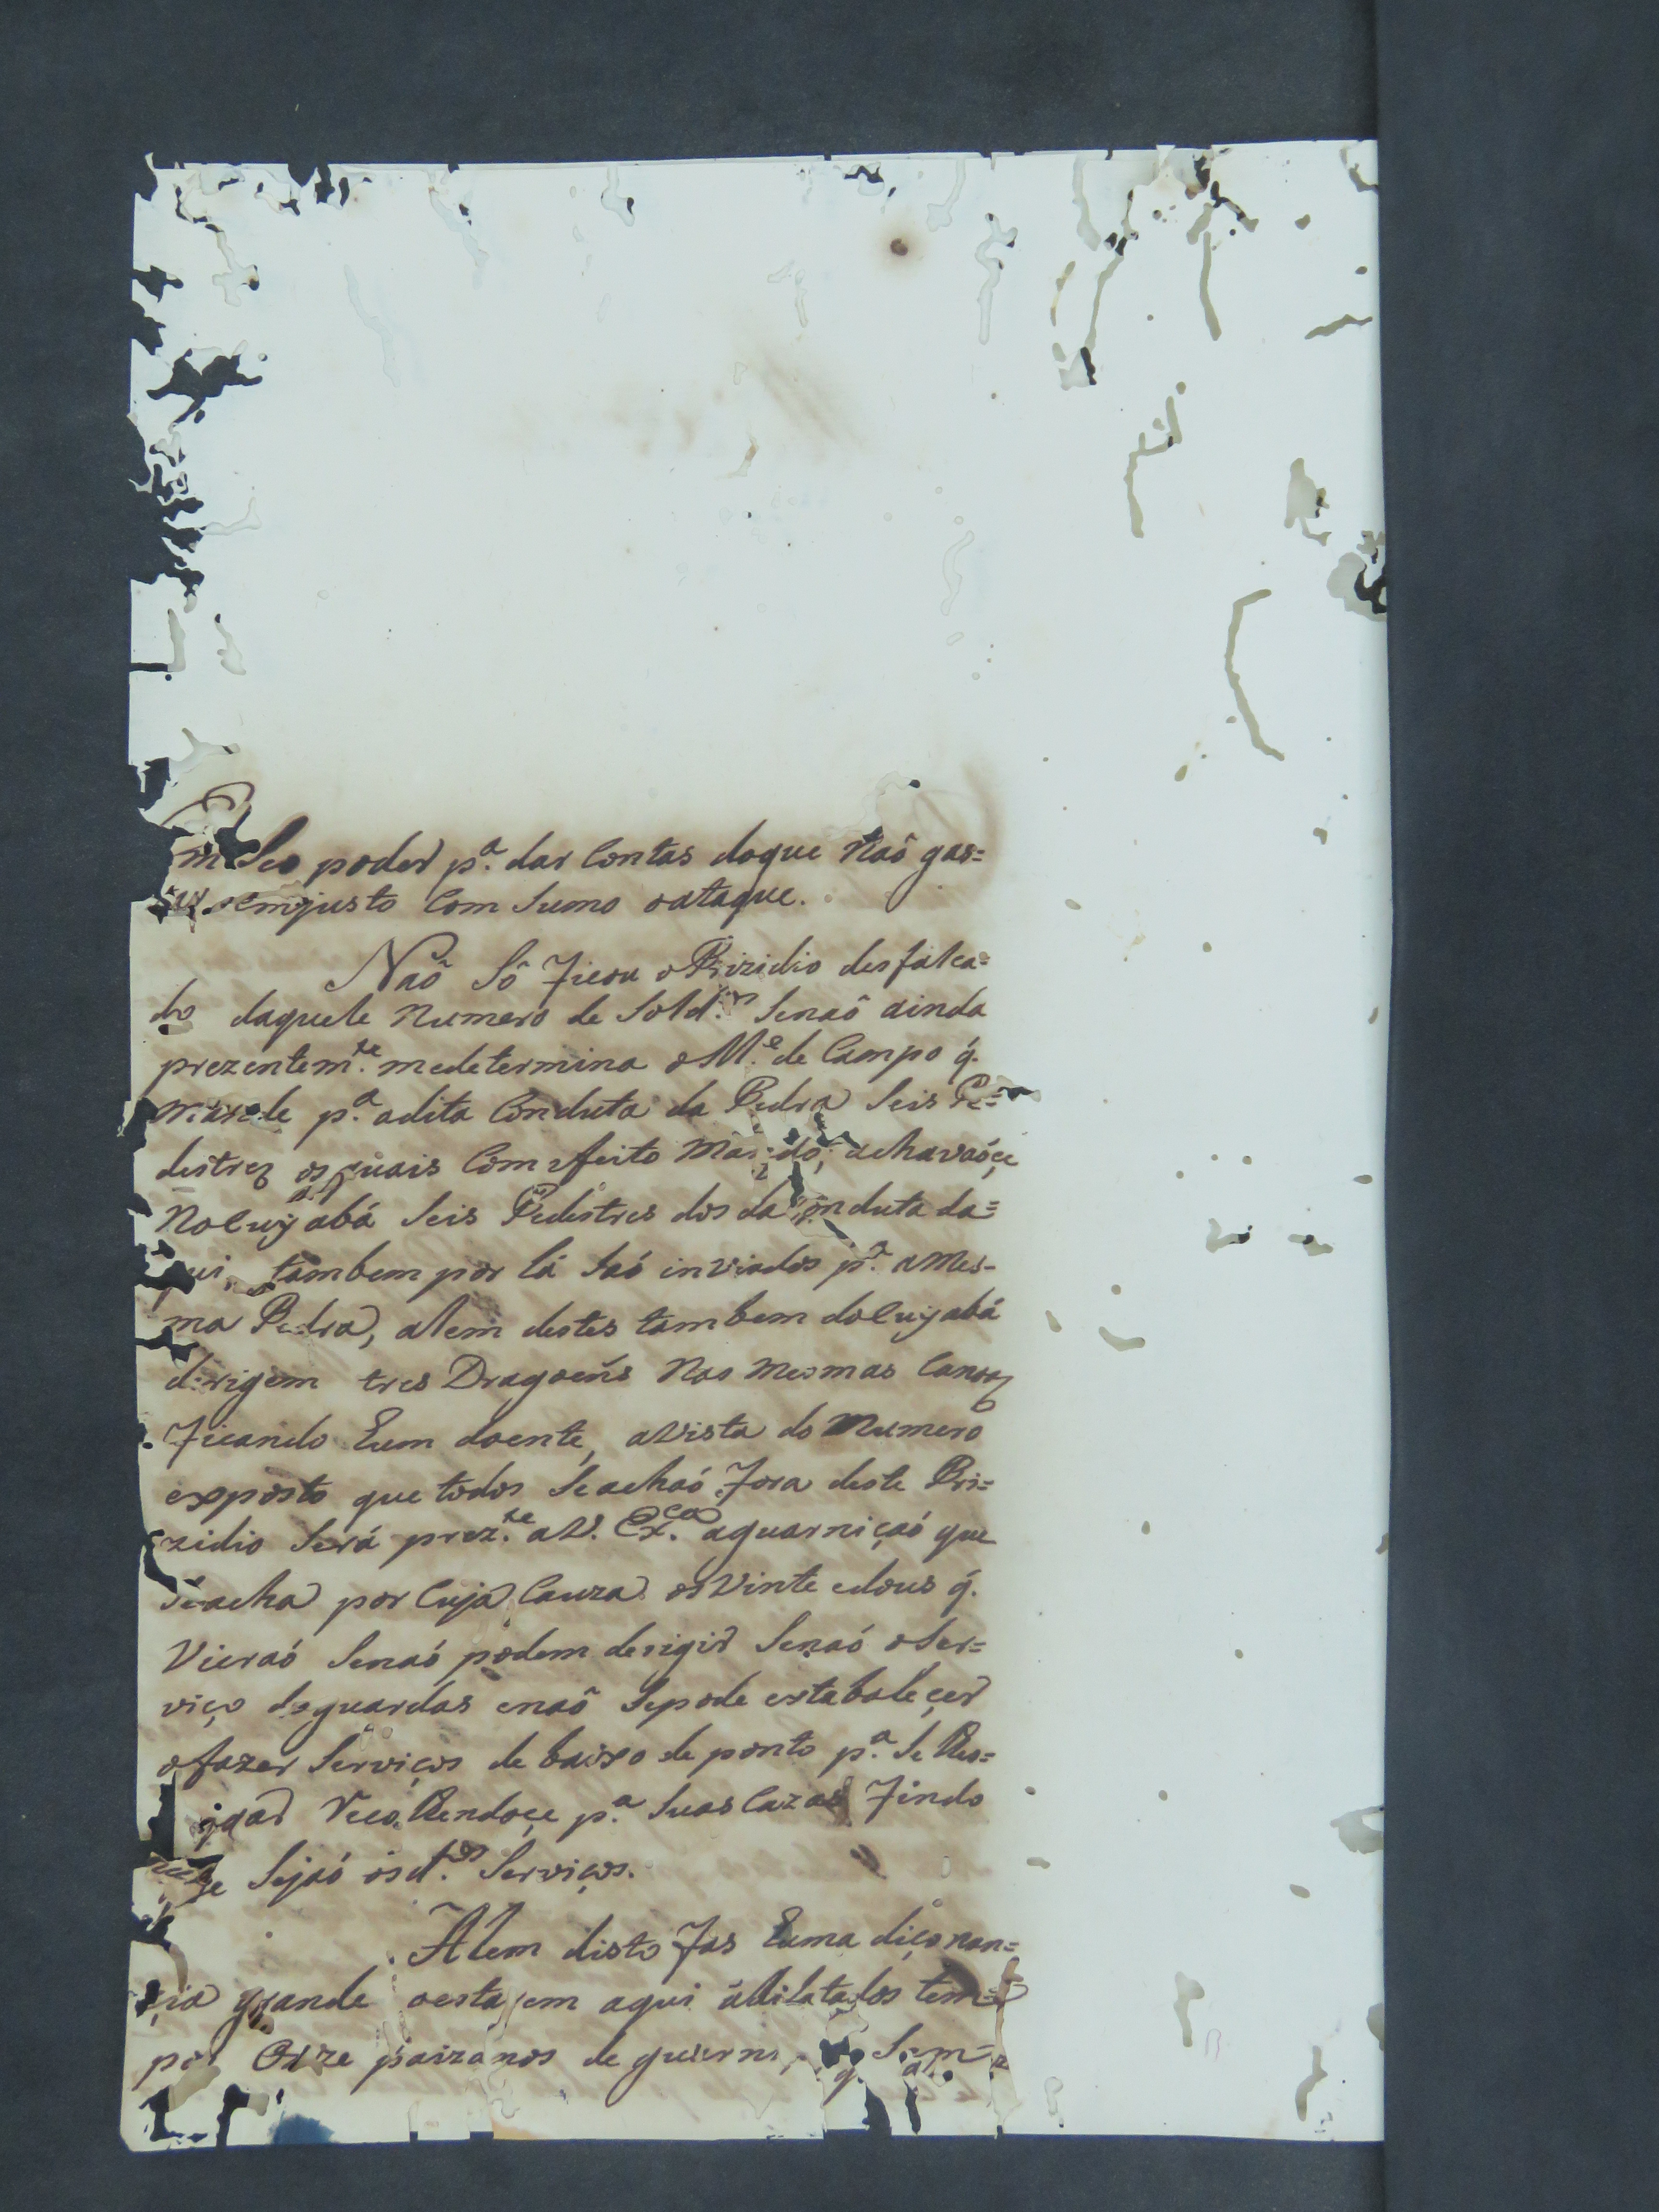 m Seo poder p.ª dar Contas doque Naõ gas=
emjusto Com Sumo oataque.
Naõ Sô Ficou o Prizidio desfalca=
do daquele Numero de Sold.os Senaõ ainda
prezentem.te medetermina o M.e de Campo q̃.
mande p.ª adita Conduta da Pedra Seis Pe=
destrez os quais Com efeito Mando, achavaóçe
NoCuyabá Seis Pedestres dos da Conduta da=
qui, tambem por lá Saó inviados p.ª aMes-
ma Pedra, alem destes tambem doCuyabá
dirigem tres Dragoens Nas Mesmas Canoaz
Ficando Eum doente, aVista do Numero
exposto que todos Seachaó Fora deste Pri=
zidio Será prez.te aV. Ex.cia aguarniçaó que
Seacha por Cuja Cauza osVinte edous q̃.
Vieraó Senaó podem derigir Senaó oSer=
viço deguardas enaõ Sepode estabaleçer
ofazer Serviços de baixo de ponto p.ª Se
p.ª Suas Cazas Findo
que Sejaó osd.tos Serviços.
Alem disto Fas Euma diçonan=
çia grande oestarem aqui tem=
po Onze paizanos de guerra, q̃.